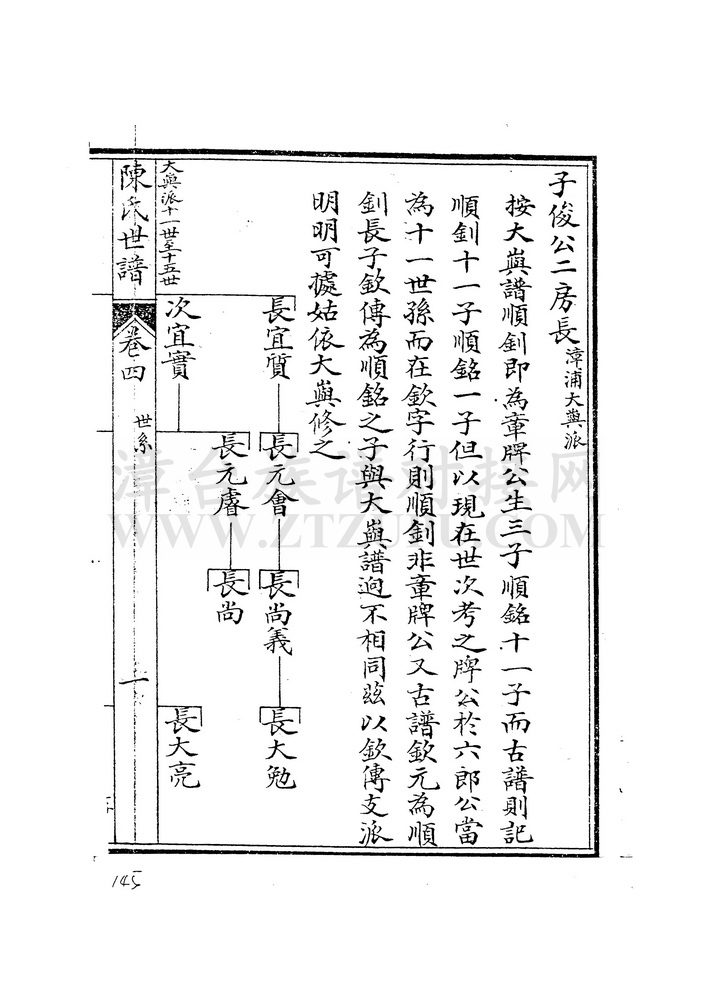 子俊公二房長 漳浦大㠘派
按大㠘譜順釗即為章牌公生三子順銘十一子而古譜則記
順釗十一子順銘一子但以現在世次考之牌公於六郎公當
為十一世孫而在欽字行則順釗非章牌公又古譜欽元為順
釗長子欽傳為順銘之子與大㠘譜逈不相同茲以欽傳支派
明明可據姑依大㠘修之
長宜質
長元會
長尚義
長大勉
長元膚
長尚
次宜實
長大亮
大㠘派十一世至十五世
陳氏世譜
卷四
世系
一
漳台族谱对接网
WWW.ZTZUPU.COM
145